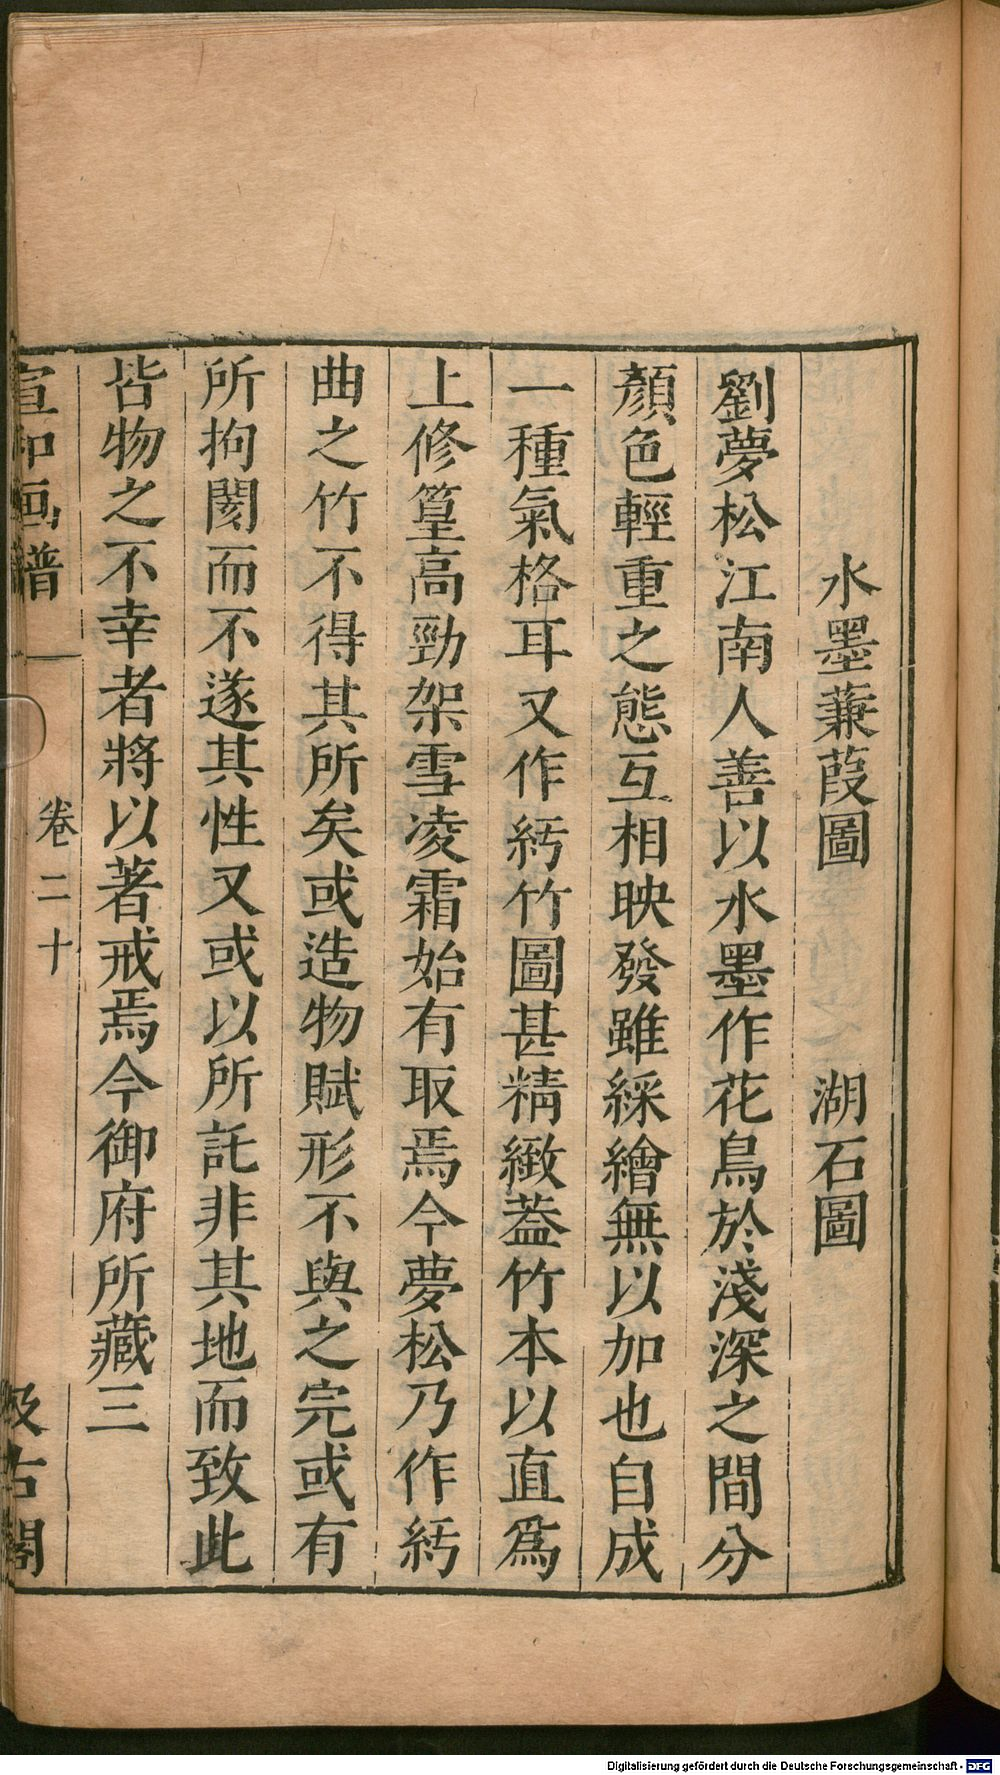 水墨蒹葭圖　湖石圖
劉夢松江南人善以水墨作花鳥於淺深之間分
顏色輕重之態互相映發雖綵繪無以加也自成
一種氣格耳又作紆竹圖甚精緻葢竹本以直爲
上修篁高勁架雪凌霜始有取焉今夢松乃作紆
曲之竹不得其所矣或造物賦形不與之完或有
所拘閡而不遂其性又或以所託非其地而致此
皆物之不幸者將以著戒焉今御府所藏三
宣和画譜 卷二十 汲古閣
Digitalisierung gefördert durch die Deutsche Forschungsgemeinschaft - DFG